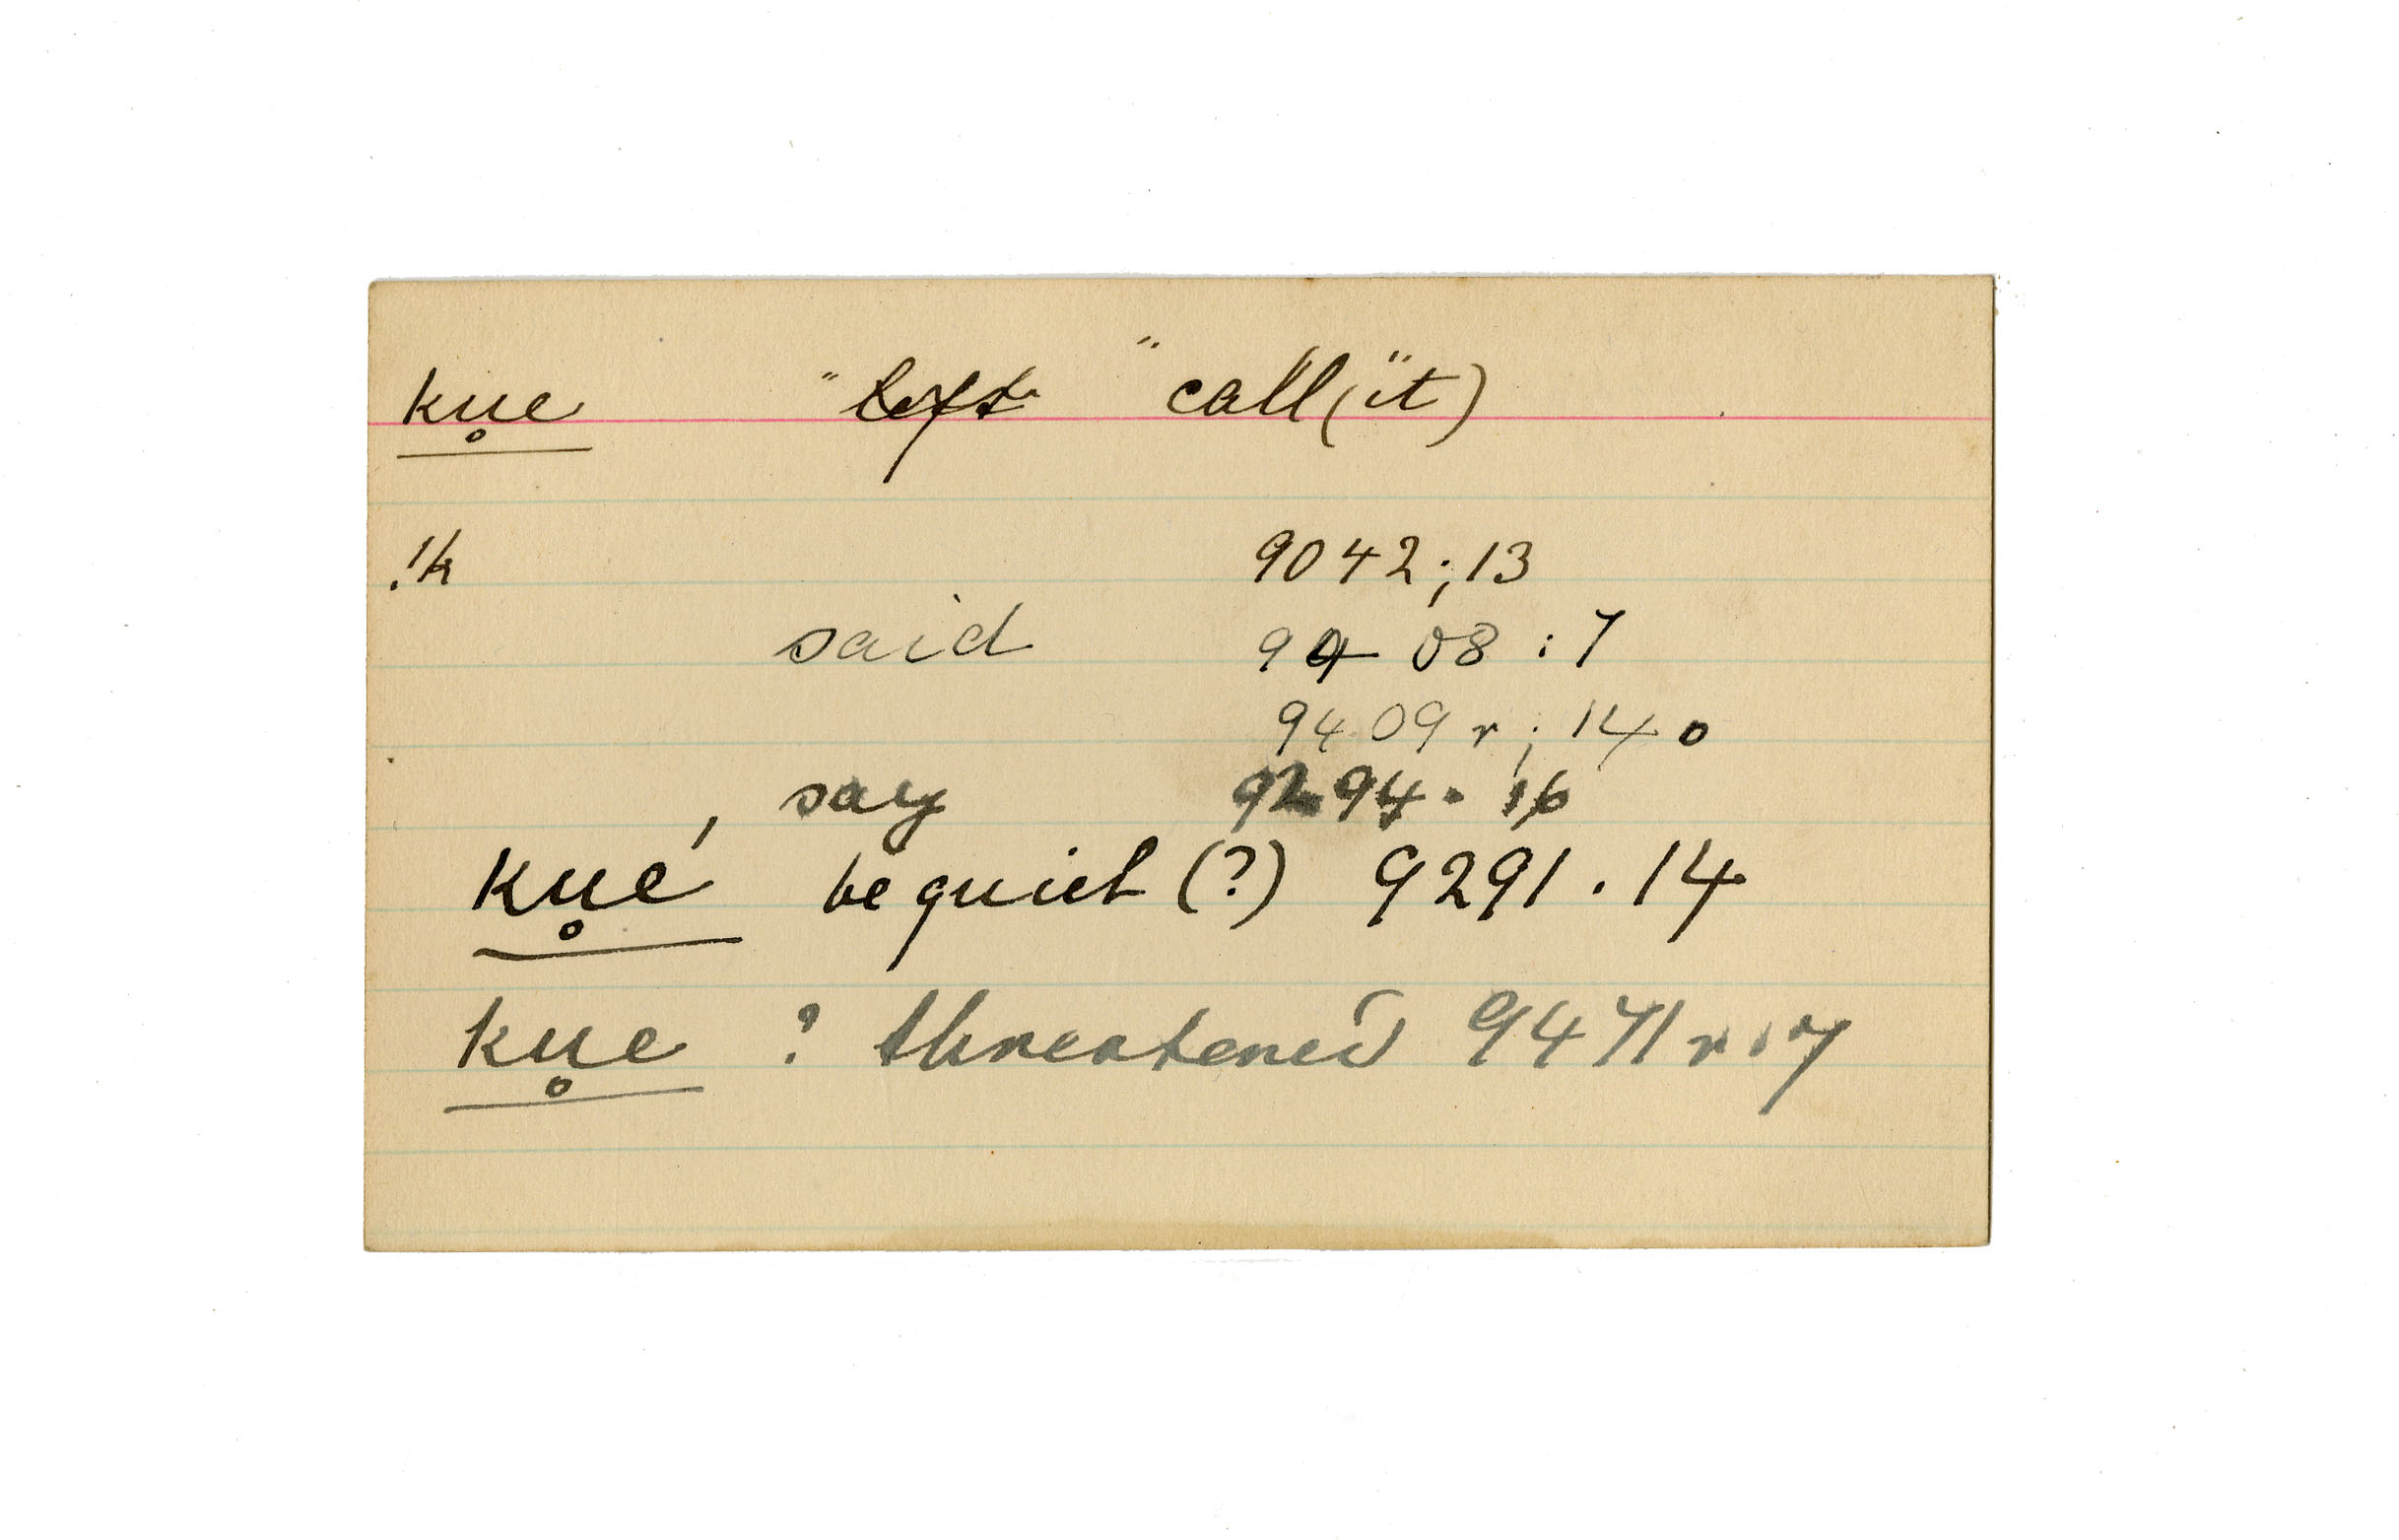 ku̥e " ~~left~~ " call (" it)
!k 9042; 13
said 9408 : 7
9409 r ; 14 o
say 9294 . 16
ku̥é be quiet (?) 9291 . 14
ku̥e ? threatened 9471 r . 7